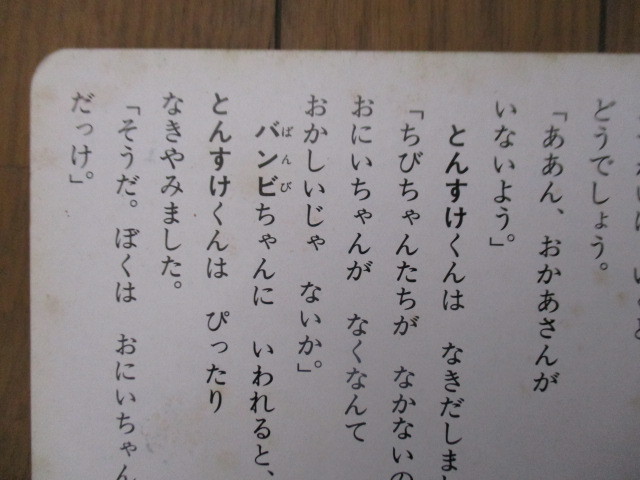 どうでしょう。
「ああん、おかあさんが
いないよう。」
とんすけくんは なきだしまし
「ちびちゃんたちが なかないの
おにいちゃんが なくなんて
おかしいじゃ ないか。」
バンビちゃんに いわれると、
ばんび
とんすけくんは ぴったり
なきやみました。
「そうだ。ぼくは おにいちゃん
だっけ。」